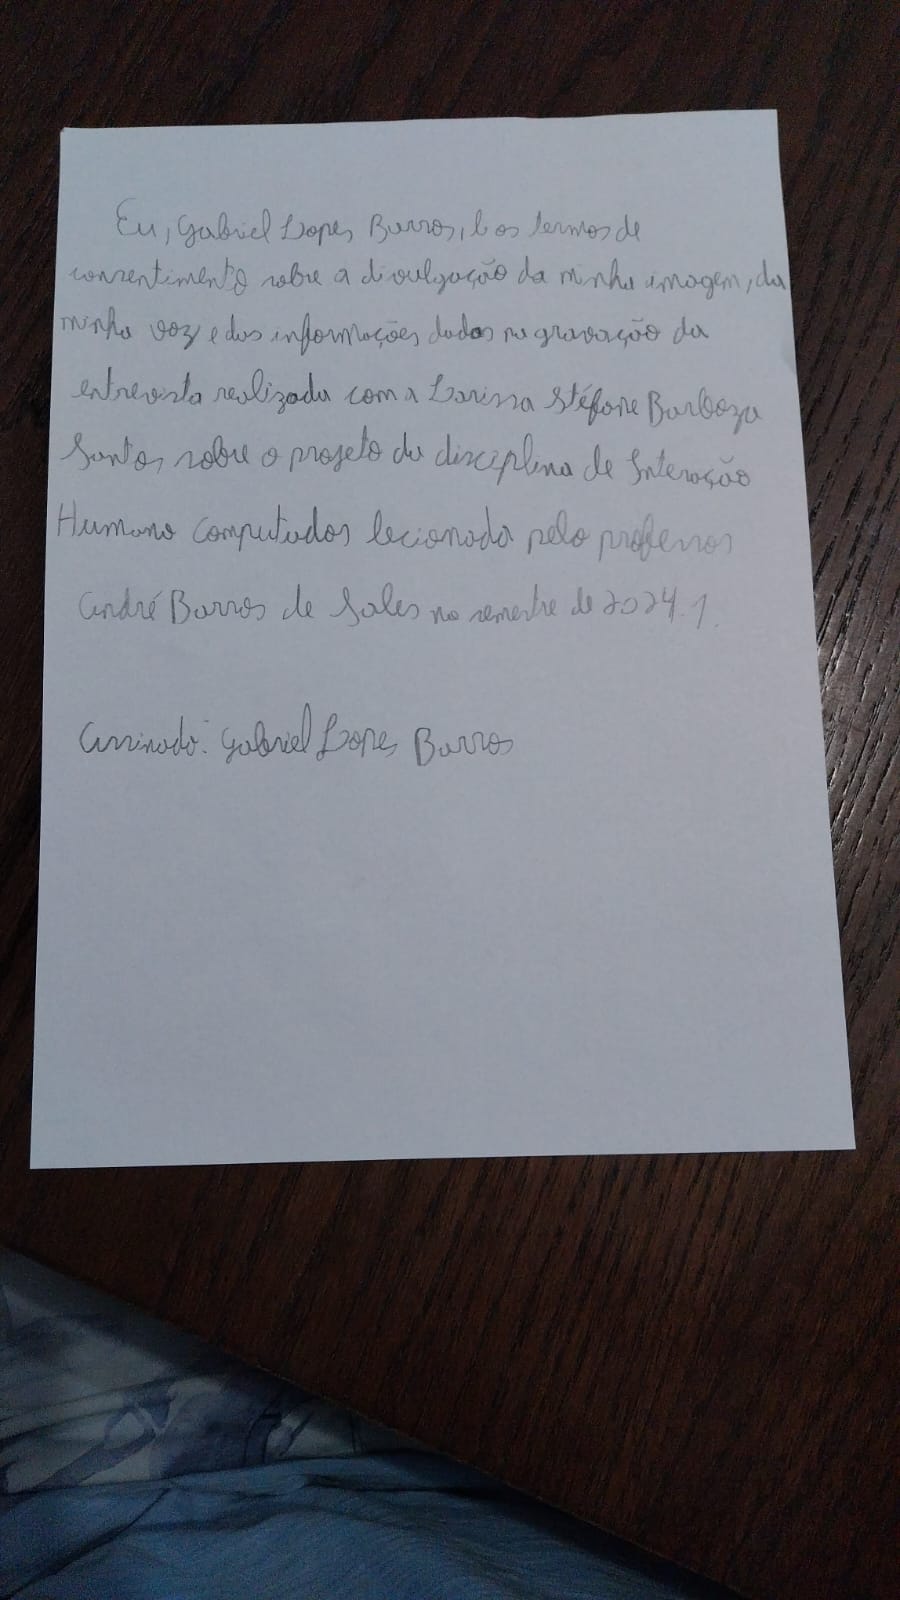 Eu, Gabriel Lopes Barros, li os termos de
consentimento sobre a divulgação da minha imagem, da
minha voz e das informações dadas na gravação da
entrevista realizada com a Larissa Stéfane Barboza
Santos, sobre o projeto da disciplina de Interação
Humano Computador lecionada pelo professor
André Barros de Sales no semestre de 2024.1.
Assinado: Gabriel Lopes Barros